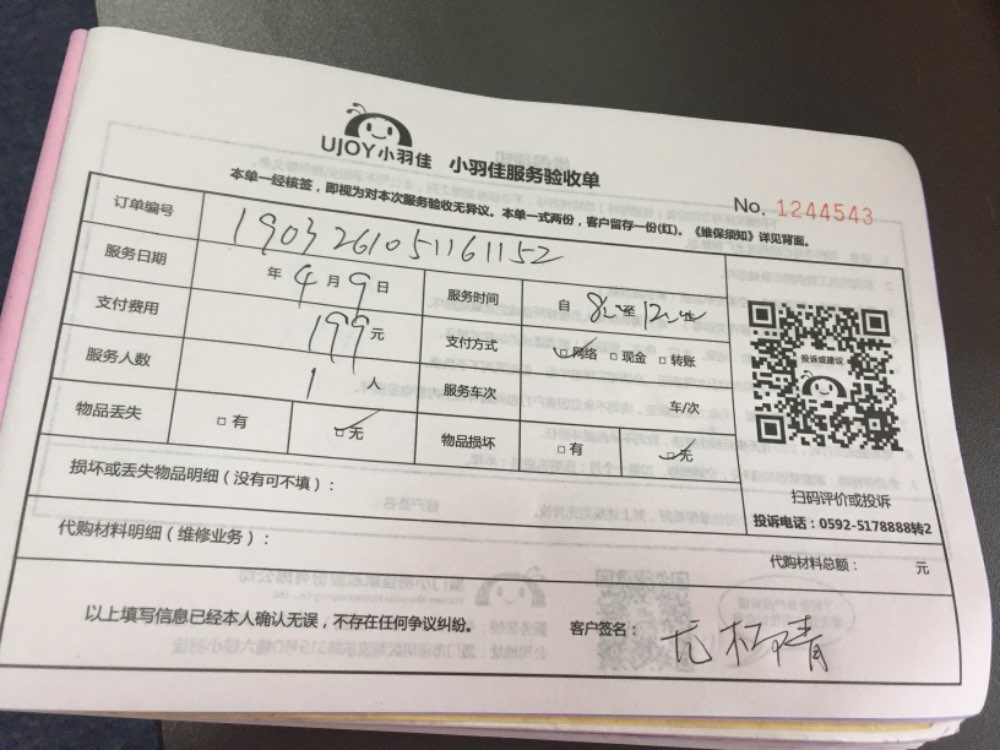 UJOY小羽佳 小羽佳服务验收单
No. 1244543
本单一经核签，即视为对本次服务验收无异议。本单一式两份，客户留存一份(红)。《维保须知》详见背面。
订单编号 1903261051161152
服务日期 年 4 月 9 日 服务时间 自 8:00 至 12:00
支付费用 199 元 支付方式 □网络 □现金 □转账
服务人数 1 人 服务车次 车/次
物品丢失 □有 □无 物品损坏 □有 □无
投诉或建议
扫码评价或投诉
投诉电话：0592-5178888转2
损坏或丢失物品明细（没有可不填）：
代购材料明细（维修业务）：
代购材料总额： 元
以上填写信息已经本人确认无误，不存在任何争议纠纷。 客户签名：